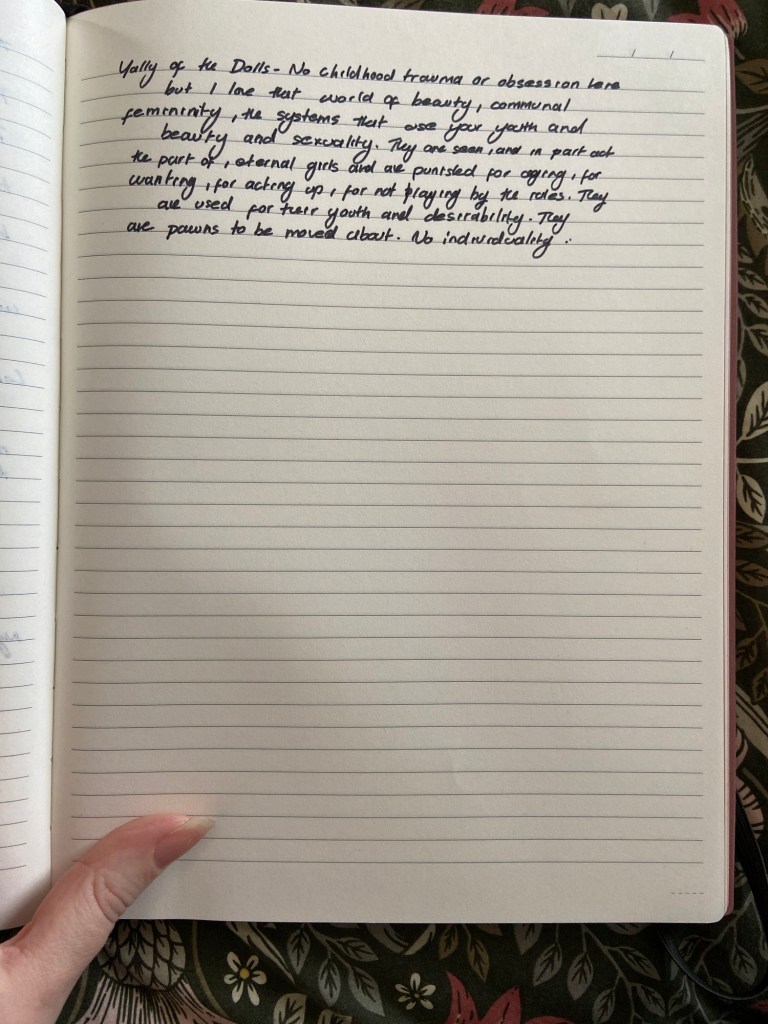 Vally of the Dolls - No childhood trauma or obsession here
but I love that world of beauty, communal
femininity, the systems that use your youth and
beauty and sexuality. They are seen, and in part act
the part of, eternal girls and are punished for aging, for
wanting, for acting up, for not playing by the rules. They
are used for their youth and desirability. They
are pawns to be moved about. No individuality.